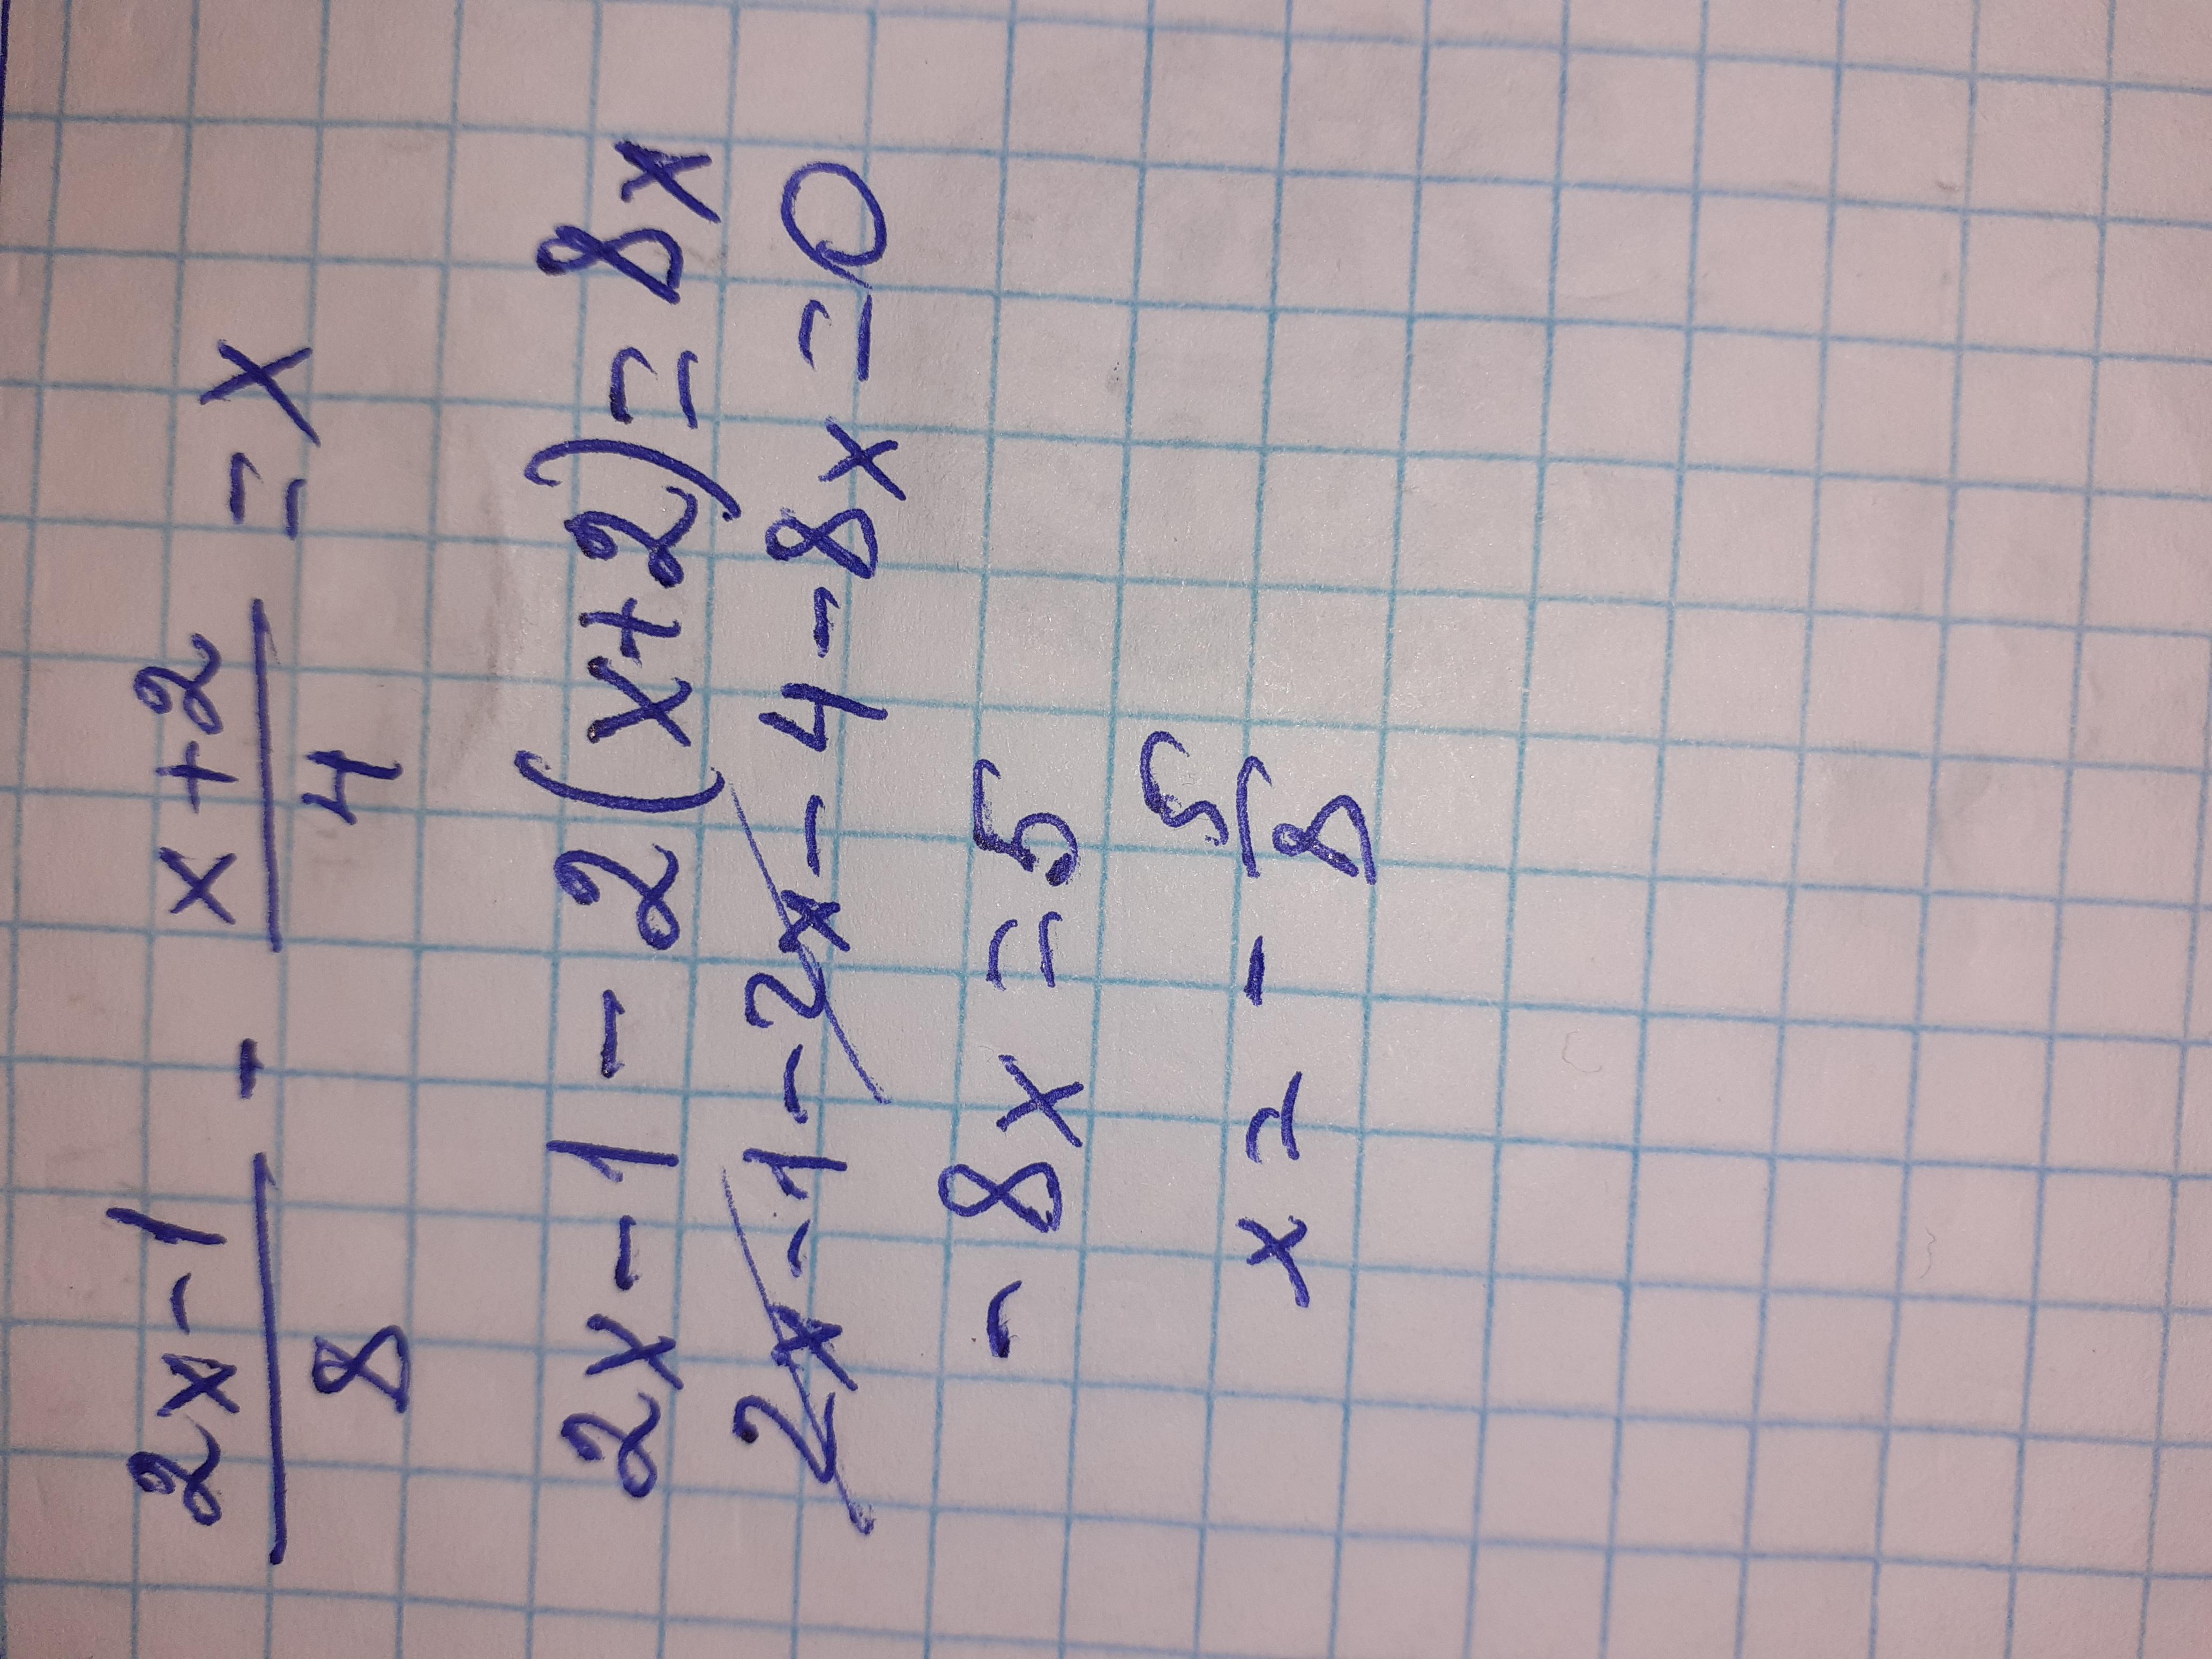 2x-1/8 - x+2/4 = x
2x-1-2(x+2)=8x
2x-1-2x-4-8x=0
-8x=5
x=-5/8